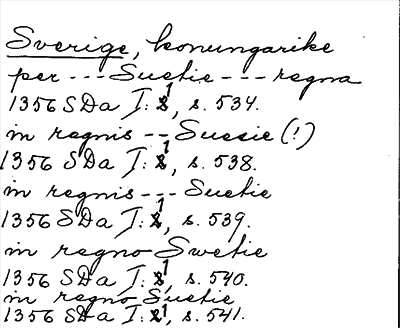 Sverige, konungarike
per --- Suetie --- regna
1356 SDa I: 1, s. 534.
in regnis -- Suesie (!)
1356 SDa I: 1, s. 538.
in regnis --- Suetie
1356 SDa I: 1, s. 539.
in regno Swetie
1356 SDa I: 1, s. 540.
in regno Suetie
1356 SDa I: 1, s. 541.